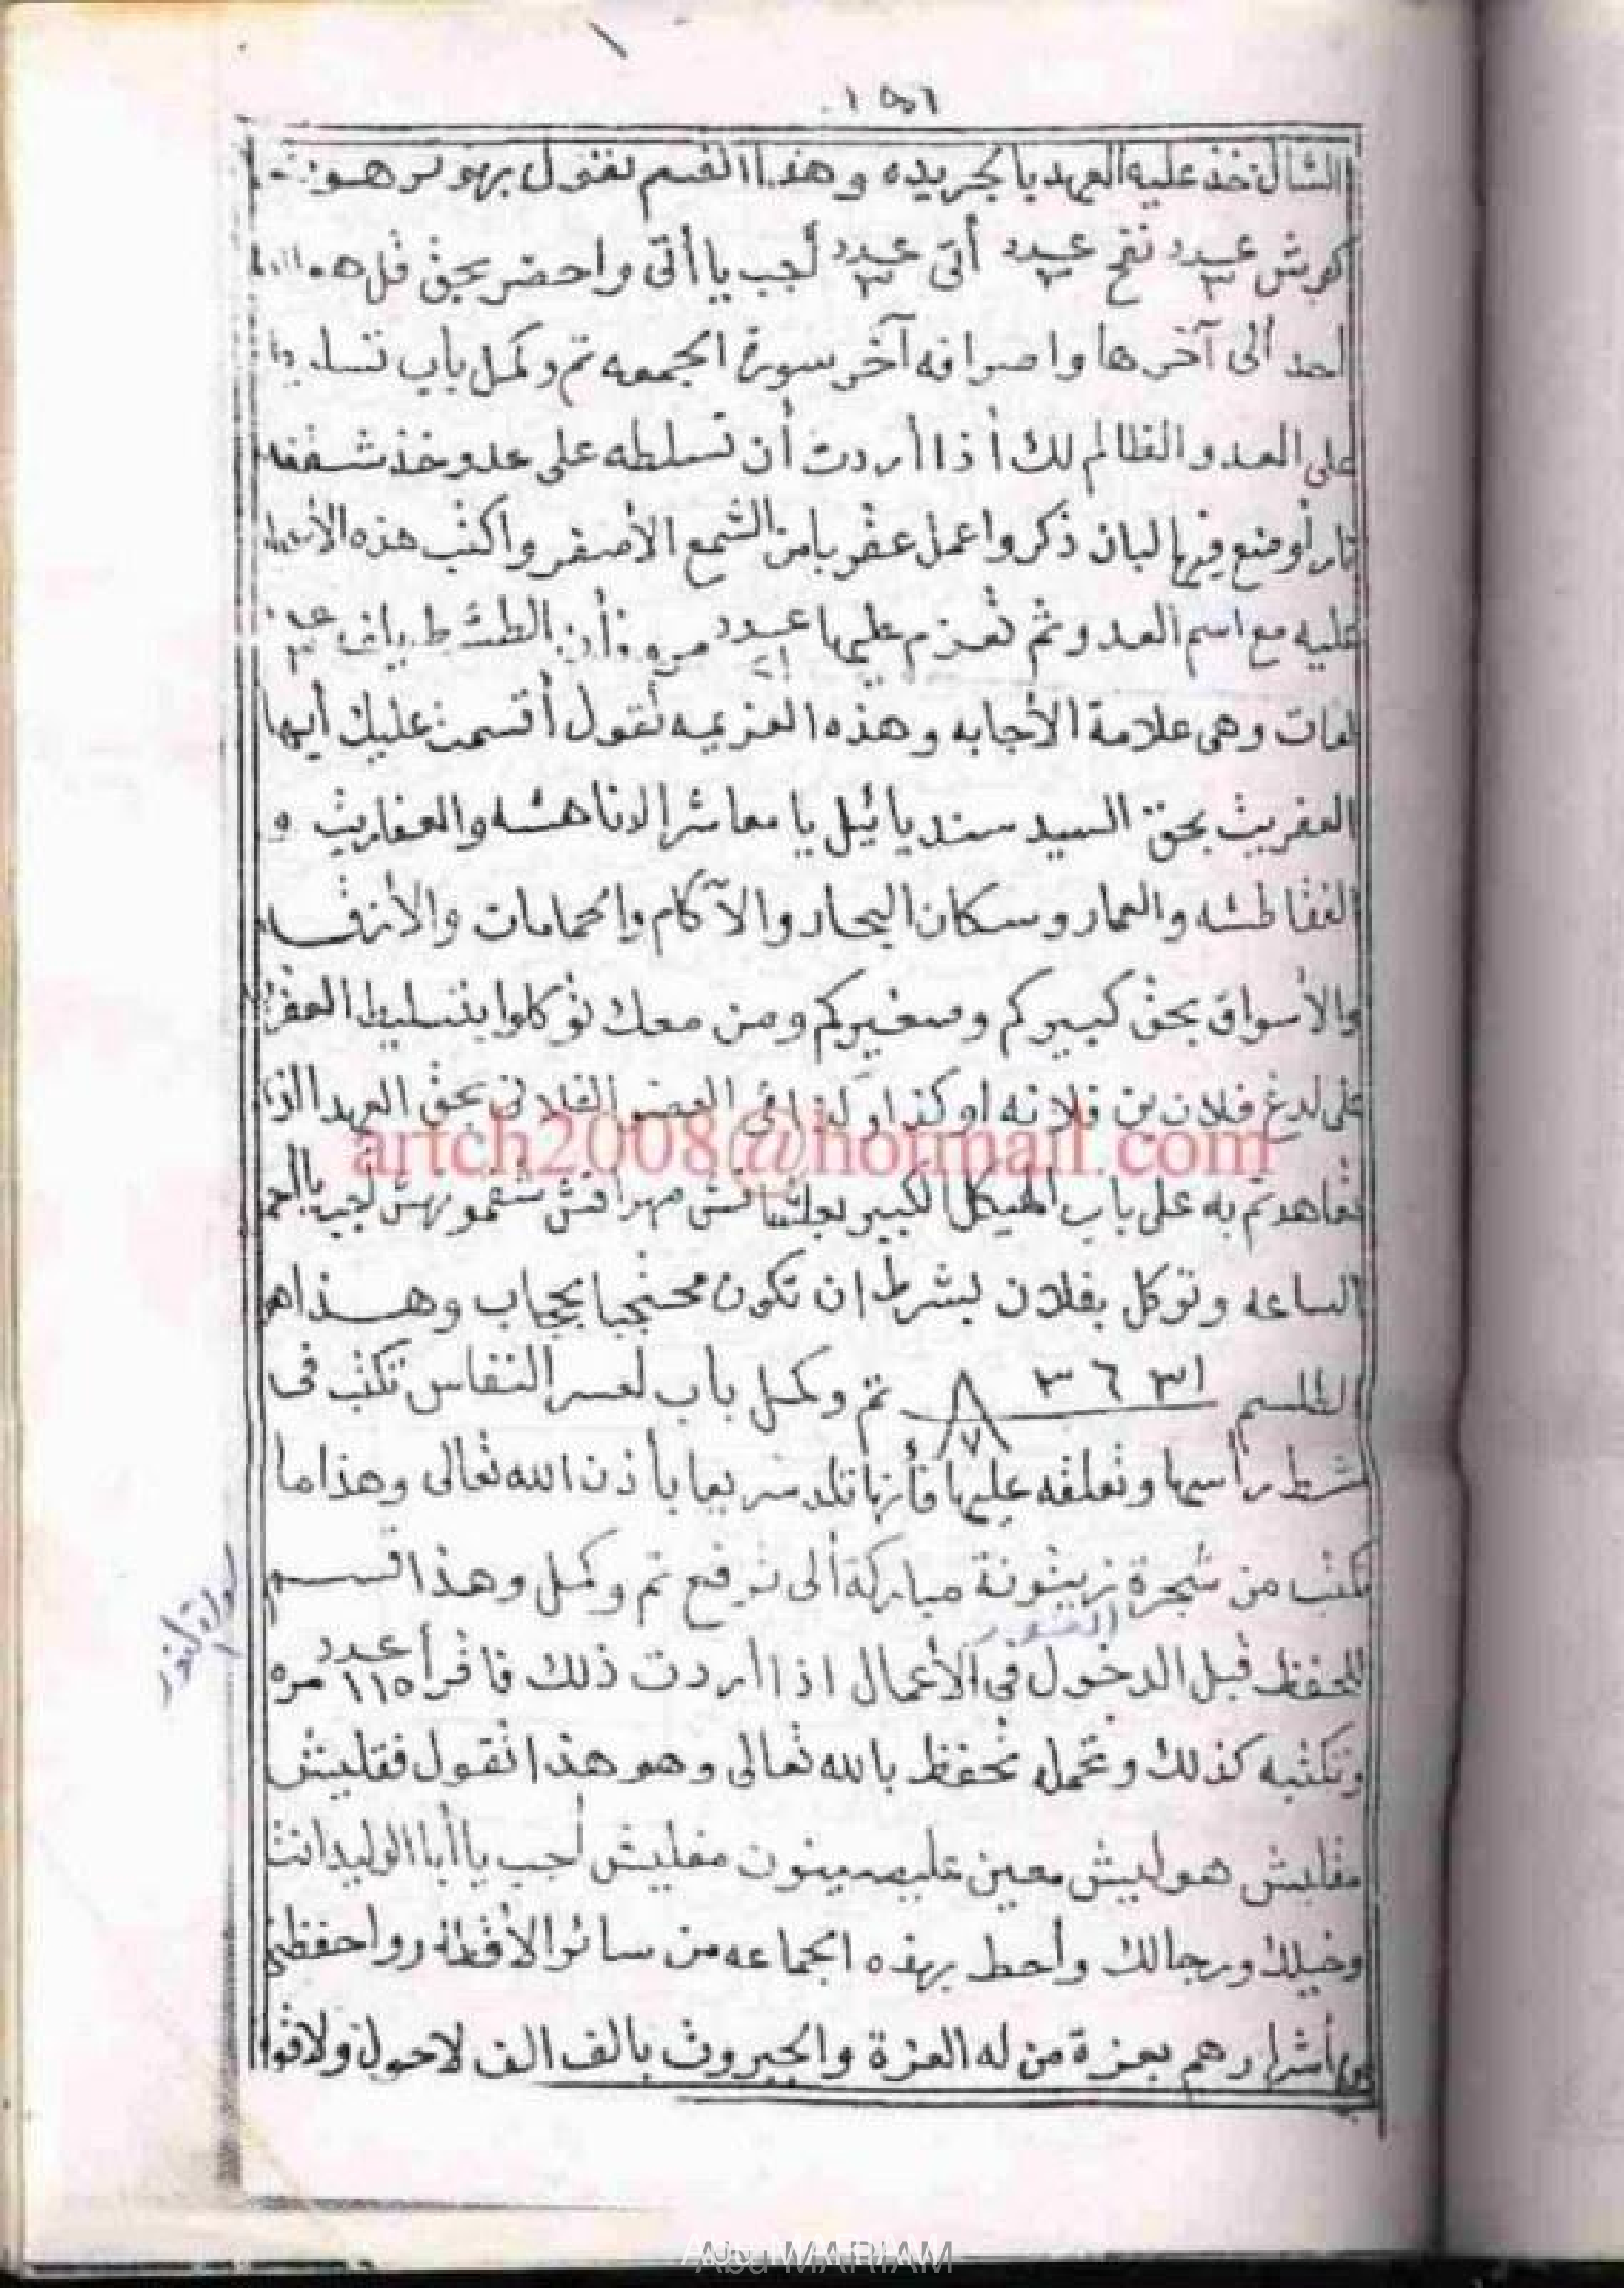 ١٥٦
الشال خذ عليه العهد بالجريده وهذا القسم تقول برهو لرهو
كوش عدد ٣ نقح عدد ٣ أتى عدد ٣ أجب يا أتى واحضر بحق قل هو الله
احد ألى آخرها واصرافه آخر سورة الجمعه تم وكمل باب تسليط
على العدو والظالم لك أذا أردت أن تسلطه على عدو خذ شقفه
نار أوضع فيها لبان ذكر واعمل عقربا من الشمع الأصفر واكتب هذه الأسماء
عليه مع اسم العدو ثم تعزم عليها عدد ٢١ مره الطشط عدد ٣
لفات وهى علامة الأجابه وهذه العزيمه تقول أقسمت عليك أيها
العفريت بحق السيد سنديائيل يا معاشر الاناهشه والعفاريت و
الغقاطشه والعمار وسكان البحار والآكام والحمامات والأزقه
والأسواق بحق كبيركم وصغيركم ومن معك توكلوا بتسليط العقرب
على لدغ فلان بن فلانه او كذا او كذا فى العضو الفلانى بحق العهد الذى
artch2008@hotmail.com
تعاهدتم به على باب الهيكل الكبير مهراقش أجب يا
الساعه وتوكل بفلان بشرط ان تكون محتجبا بحجاب وهذا هو
الطلسم ١ ٣ ٣ ٦ ٣ ٨ ٧ تم وكمل باب لعسر النفاس تكتب فى
شرط رأسها وتعلقه عليها فأنها تلد سريعا بأذن الله تعالى وهذا ما
تكتب من شجرة زيتونة مباركة ألى ترفع تم وكمل وهذا قسم
سورة النور
للحفظ قبل الدخول فى الأعمال اذا أردت ذلك فاقرأ عدد ١١٥ مره
وتكتبه كذلك وتحمله تحفظ بالله تعالى وهو هذا تقول فقليش
مقليش هوليش معين مقليش أجب يا أبا الوليد انت
وخيلك ورجالك وأحط بهذه الجماعه من سائر الأقطار واحفظهم
من أشرارهم بعزة من له العزة والجبروت بالف الف لا حول ولا قوا
Abu MARIAM